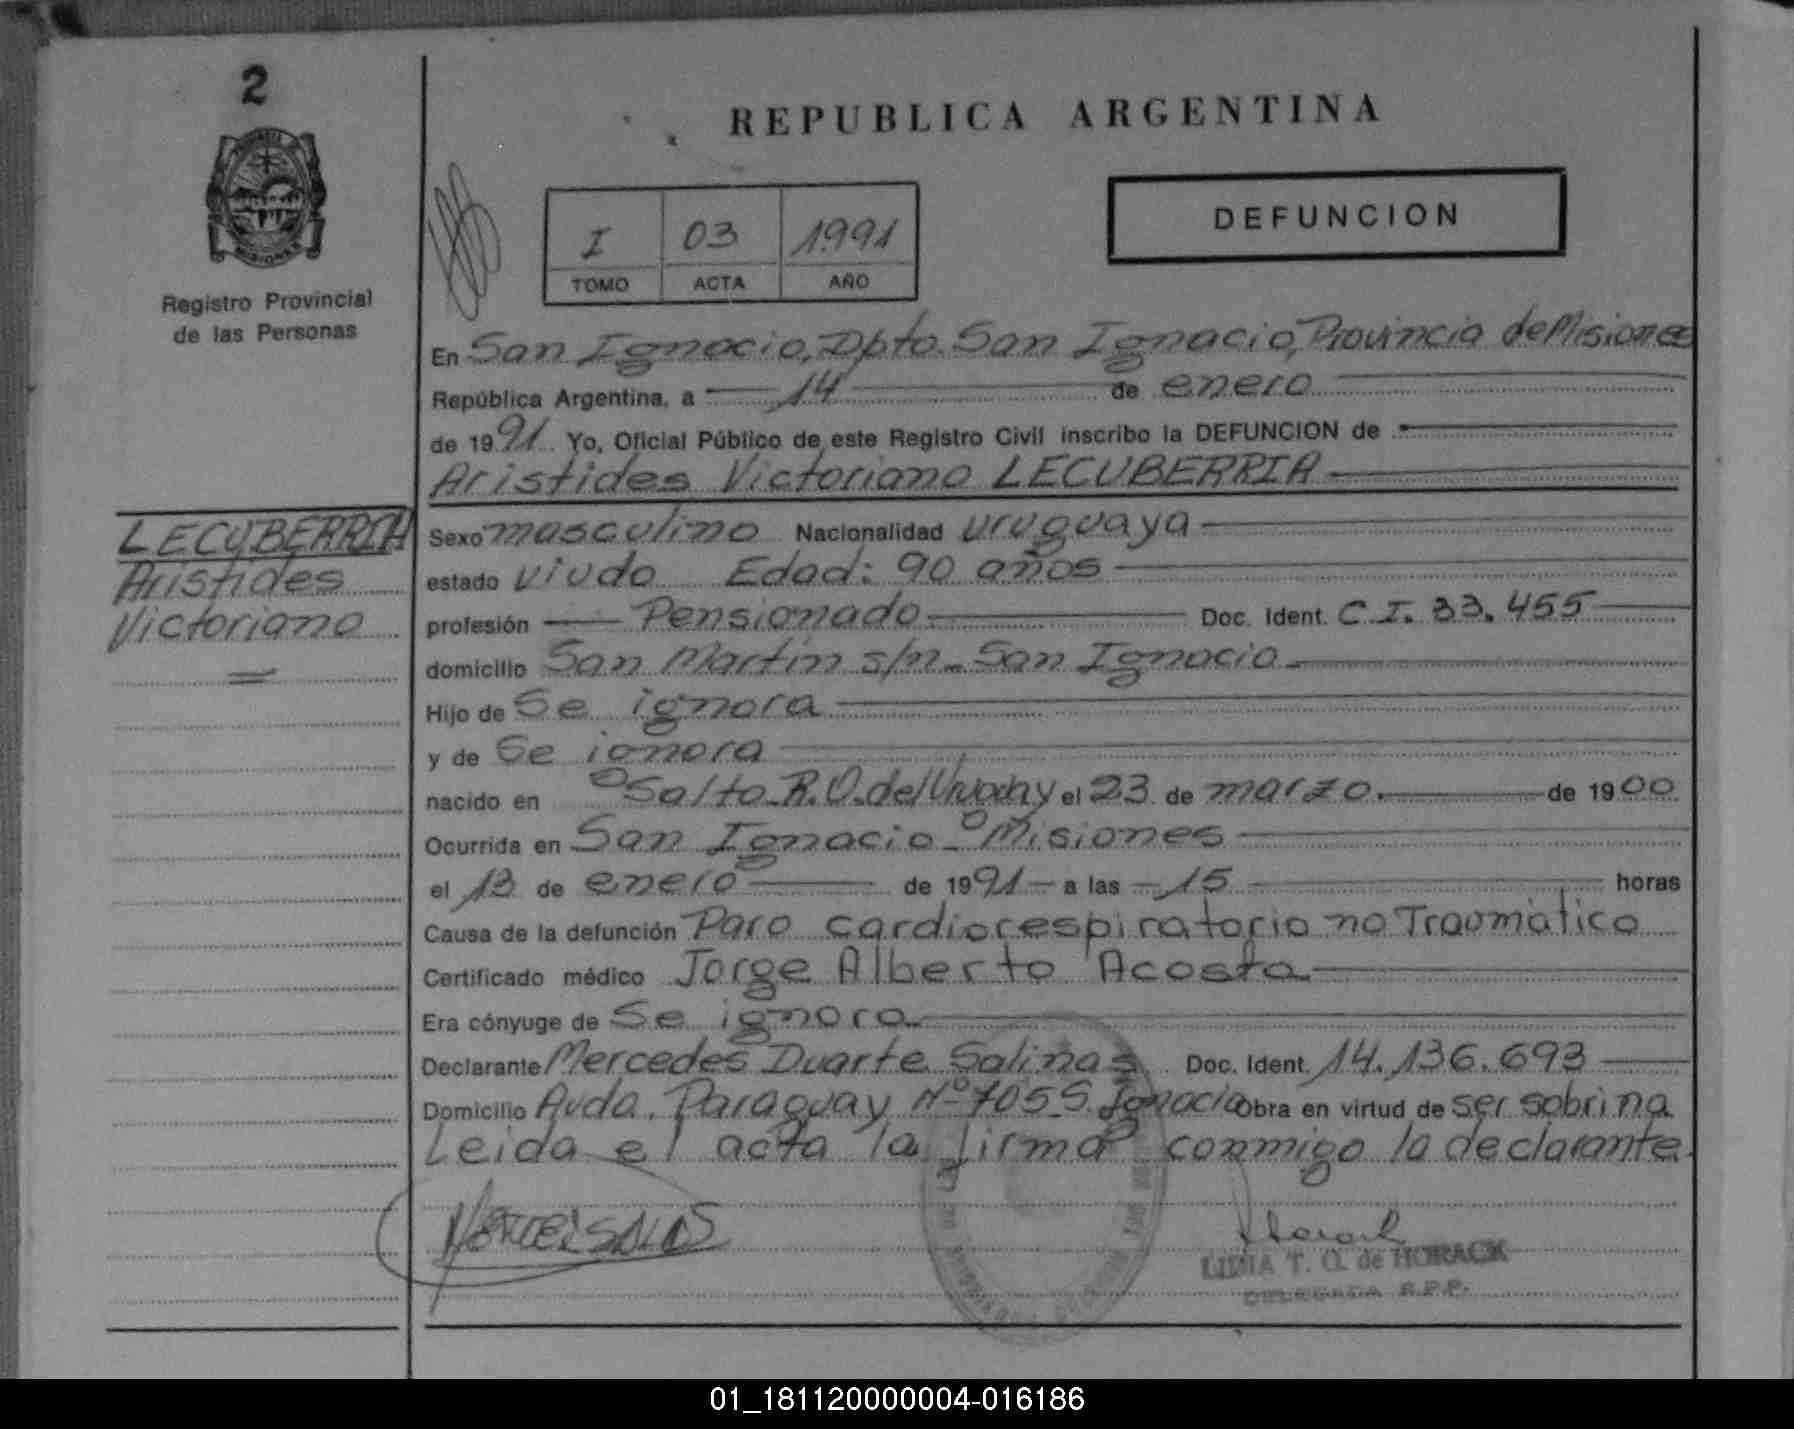 2
REPUBLICA ARGENTINA
DEFUNCION
I 03 1991
TOMO ACTA AÑO
MISIONES
Registro Provincial
de las Personas
En San Ignacio, Dpto. San Ignacio, Provincia de Misiones
República Argentina, a 14 de enero
de 1991 Yo, Oficial Público de este Registro Civil inscribo la DEFUNCION de
Aristides Victoriano LECUBERRIA
LECUBERRIA
Aristides
Victoriano
Sexo masculino Nacionalidad uruguaya
estado viudo Edad: 90 años
profesión Pensionado Doc. Ident. C.I. 33.455
domicilio San Martín s/n - San Ignacio
Hijo de Se ignora
y de Se ignora
nacido en Salto R.O. del Uruguay el 23 de marzo. de 1900
Ocurrida en San Ignacio - Misiones
el 13 de enero de 1991 a las 15 horas
Causa de la defunción Paro cardiorespiratorio no Traumático
Certificado médico Jorge Alberto Acosta
Era cónyuge de Se ignora
Declarante Mercedes Duarte Salinas Doc. Ident. 14.136.693
Domicilio Avda. Paraguay Nº 705 S. Ignacio Obra en virtud de ser sobrina
Leida el acta la firma conmigo la declarante.
LIDIA T. O. de HORACK
DELEGADA R.P.P.
01_181120000004-016186